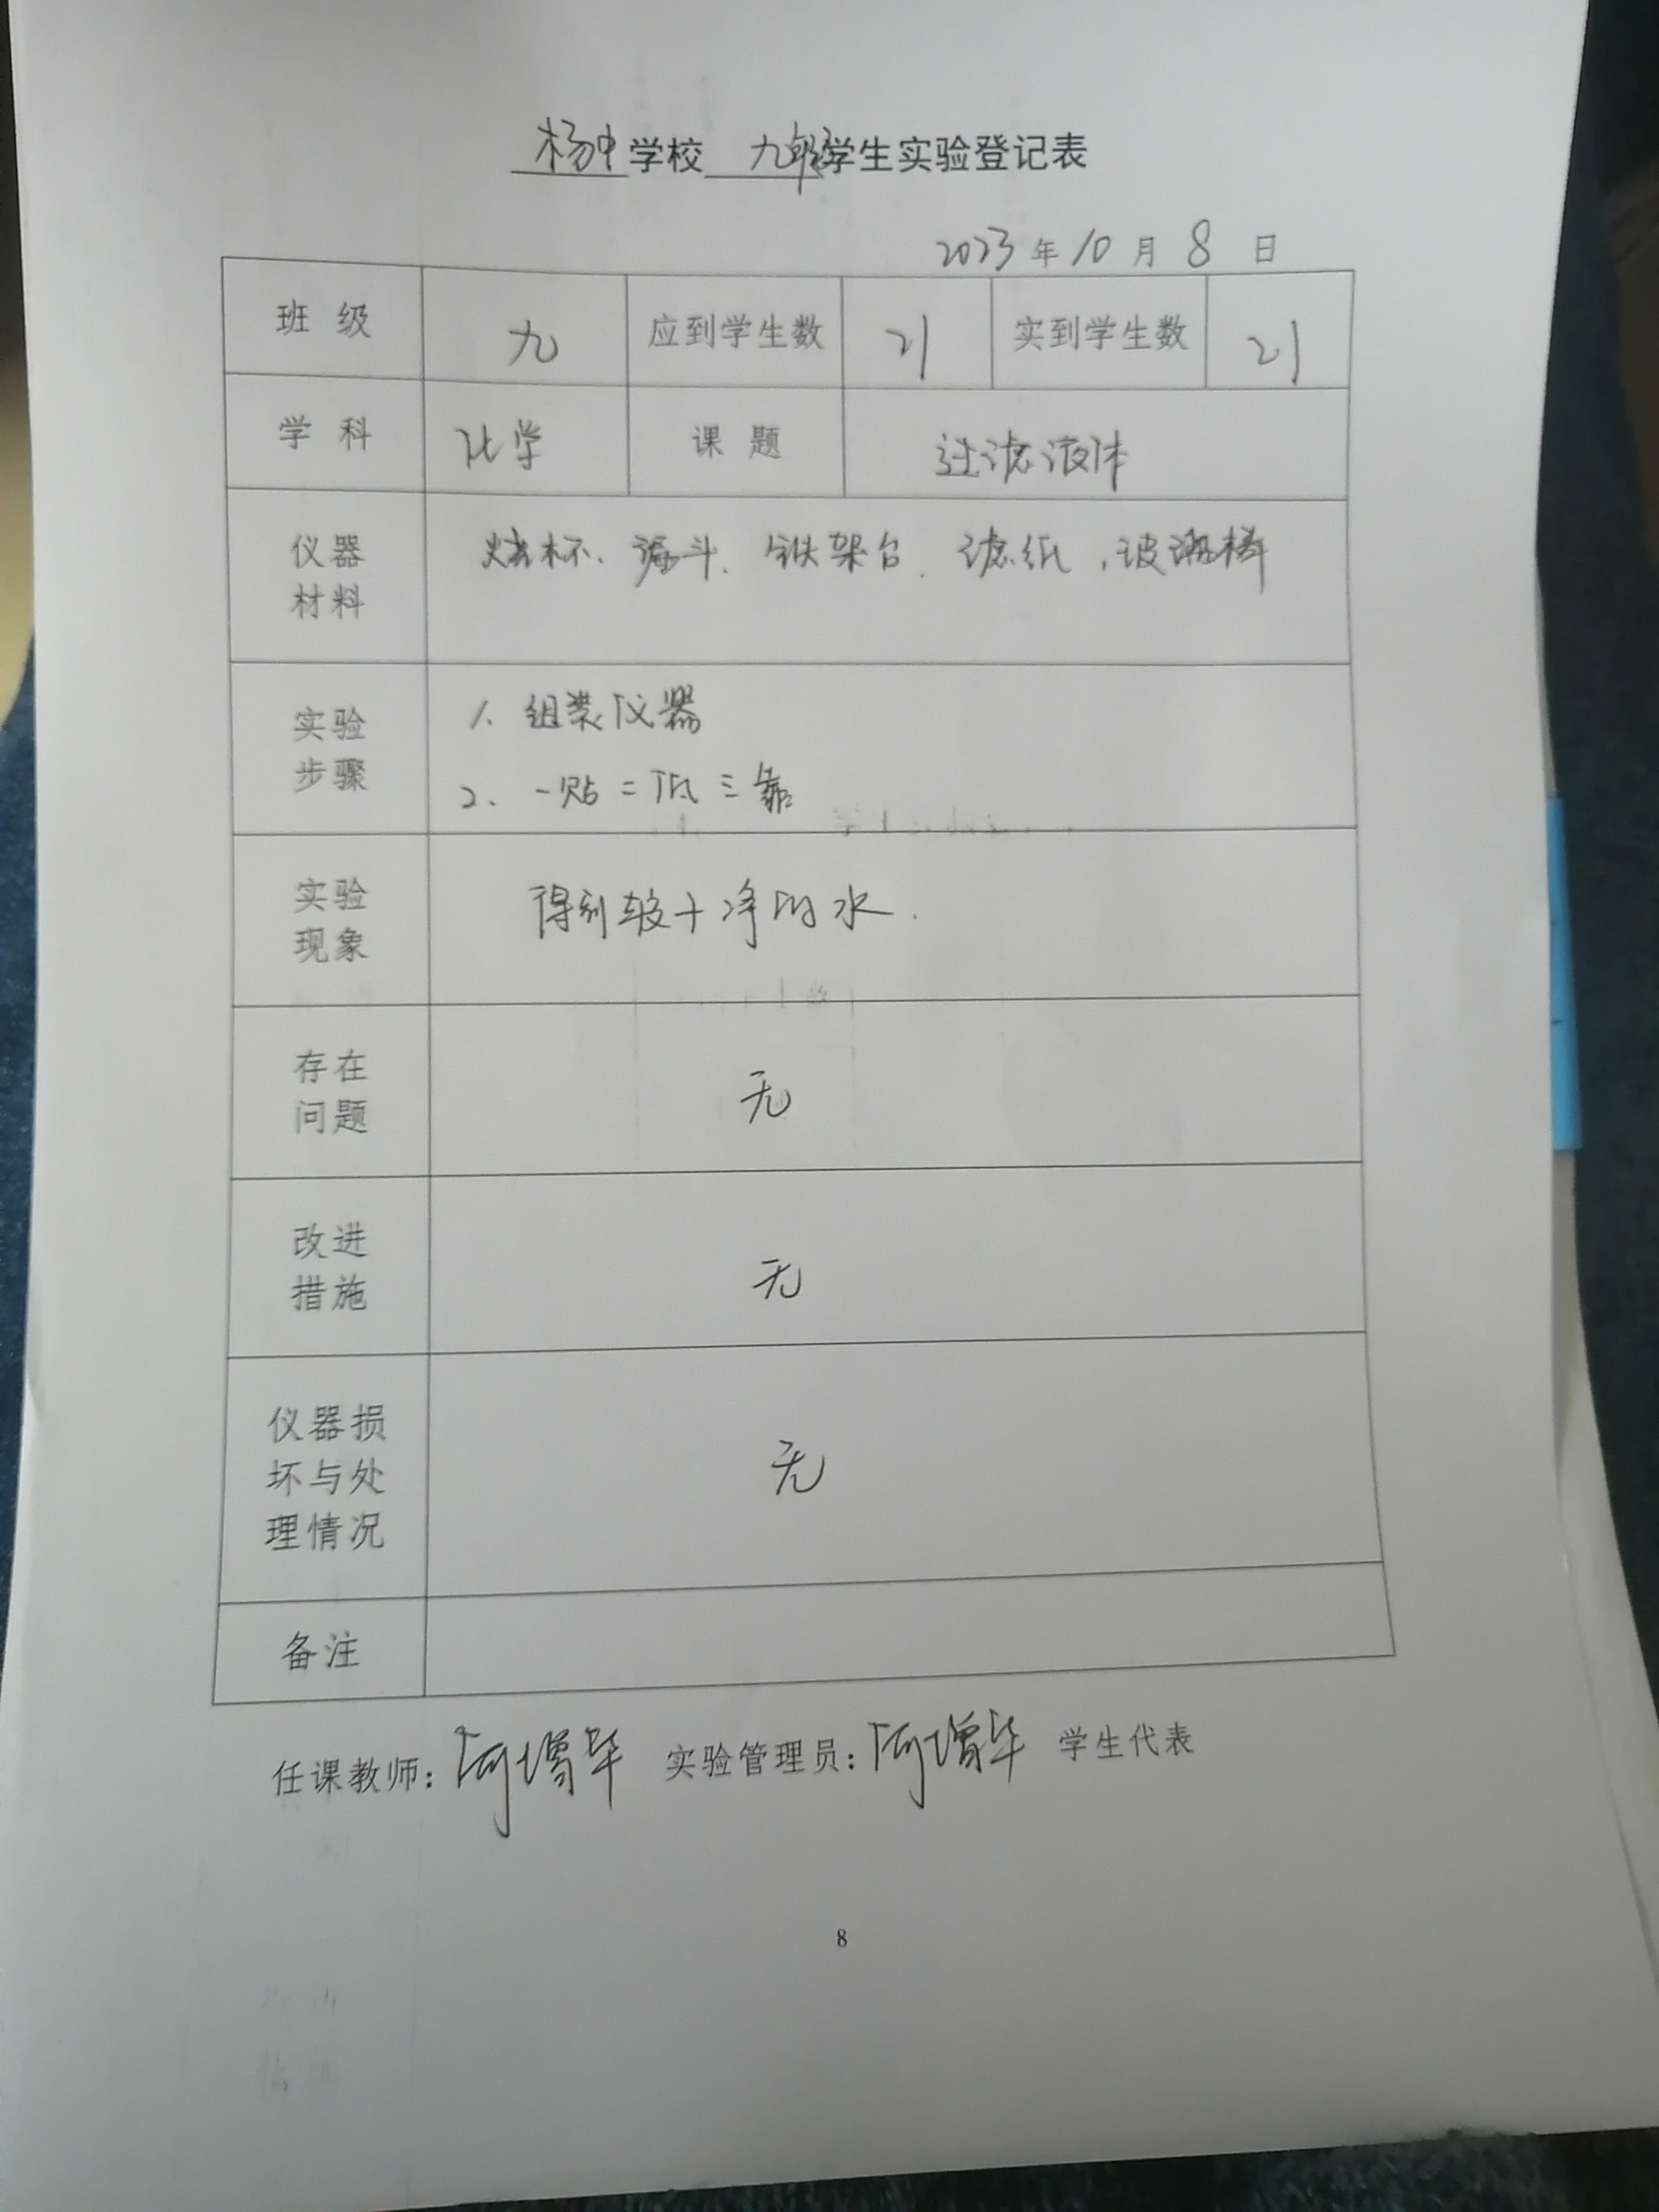 杨中学校 九年级学生实验登记表
2023年10月8日
班级 九 应到学生数 21 实到学生数 21
学科 化学 课题 过滤液体
仪器
材料
烧杯、漏斗、铁架台、滤纸、玻璃棒
实验
步骤
1、组装仪器
2、一贴二低三靠
实验
现象
得到较干净的水.
存在
问题
无
改进
措施
无
仪器损
坏与处
理情况
无
备注
任课教师: 实验管理员: 学生代表
8